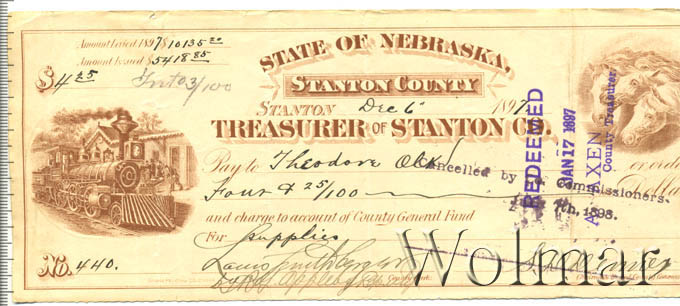 Amount Levied 1897 $10135.20
Amount Issued $5418.85
$4 25
Int 03/100
STATE OF NEBRASKA,
STANTON COUNTY
STANTON Dec 6 1897
TREASURER OF STANTON CO.
Pay to Theodore
or order
Four & 25/100
Dollars
and charge to account of County General Fund
For Supplies
No. 440.
REDEEMED
JAN 17 1897
County Treasurer
Cancelled by Commissioners.
7th, 1898.
County Clerk
Wolmar